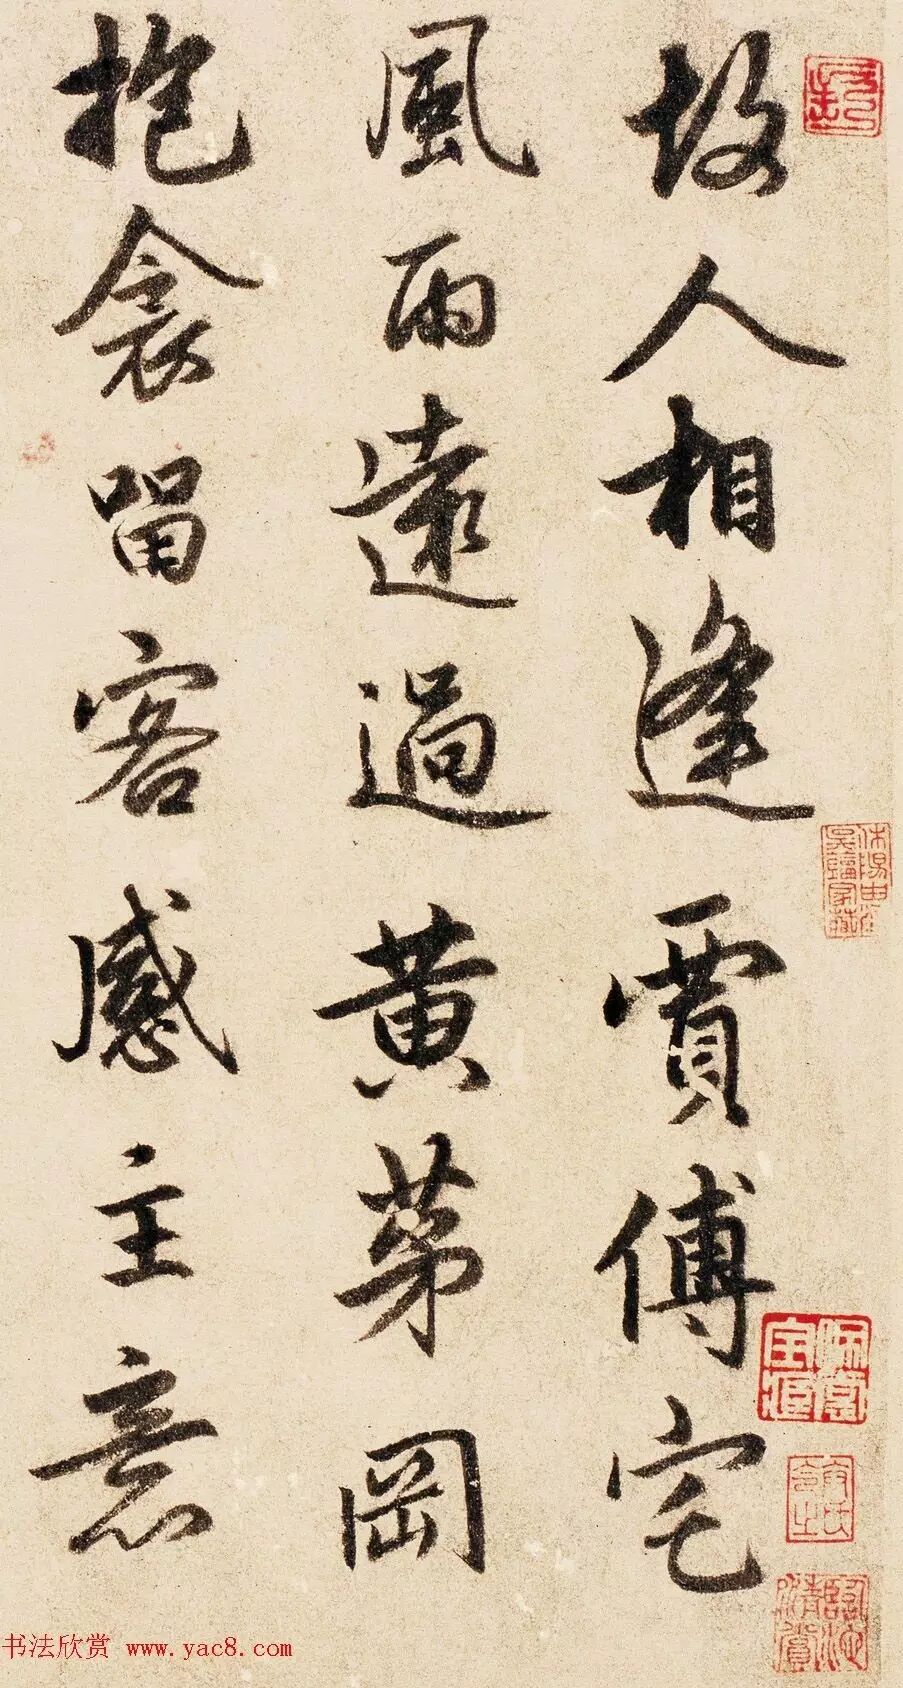 故人相逢賈傅宅
風雨遠過黃茅岡
抱衾留客感主意
书法欣赏 www.yac8.com